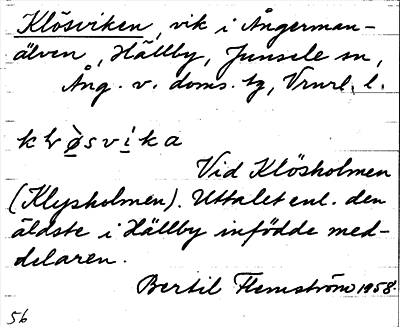 Klösviken, vik i Ångerman-
älven, Hällby, Junsele sn,
Ång. v. doms. tg, Vrnrl. l.
Vid Klösholmen
(Klysholmen). Uttalet enl. den
äldste i Hällby infödde med-
delaren.
Bertil Flemström 1958.
56